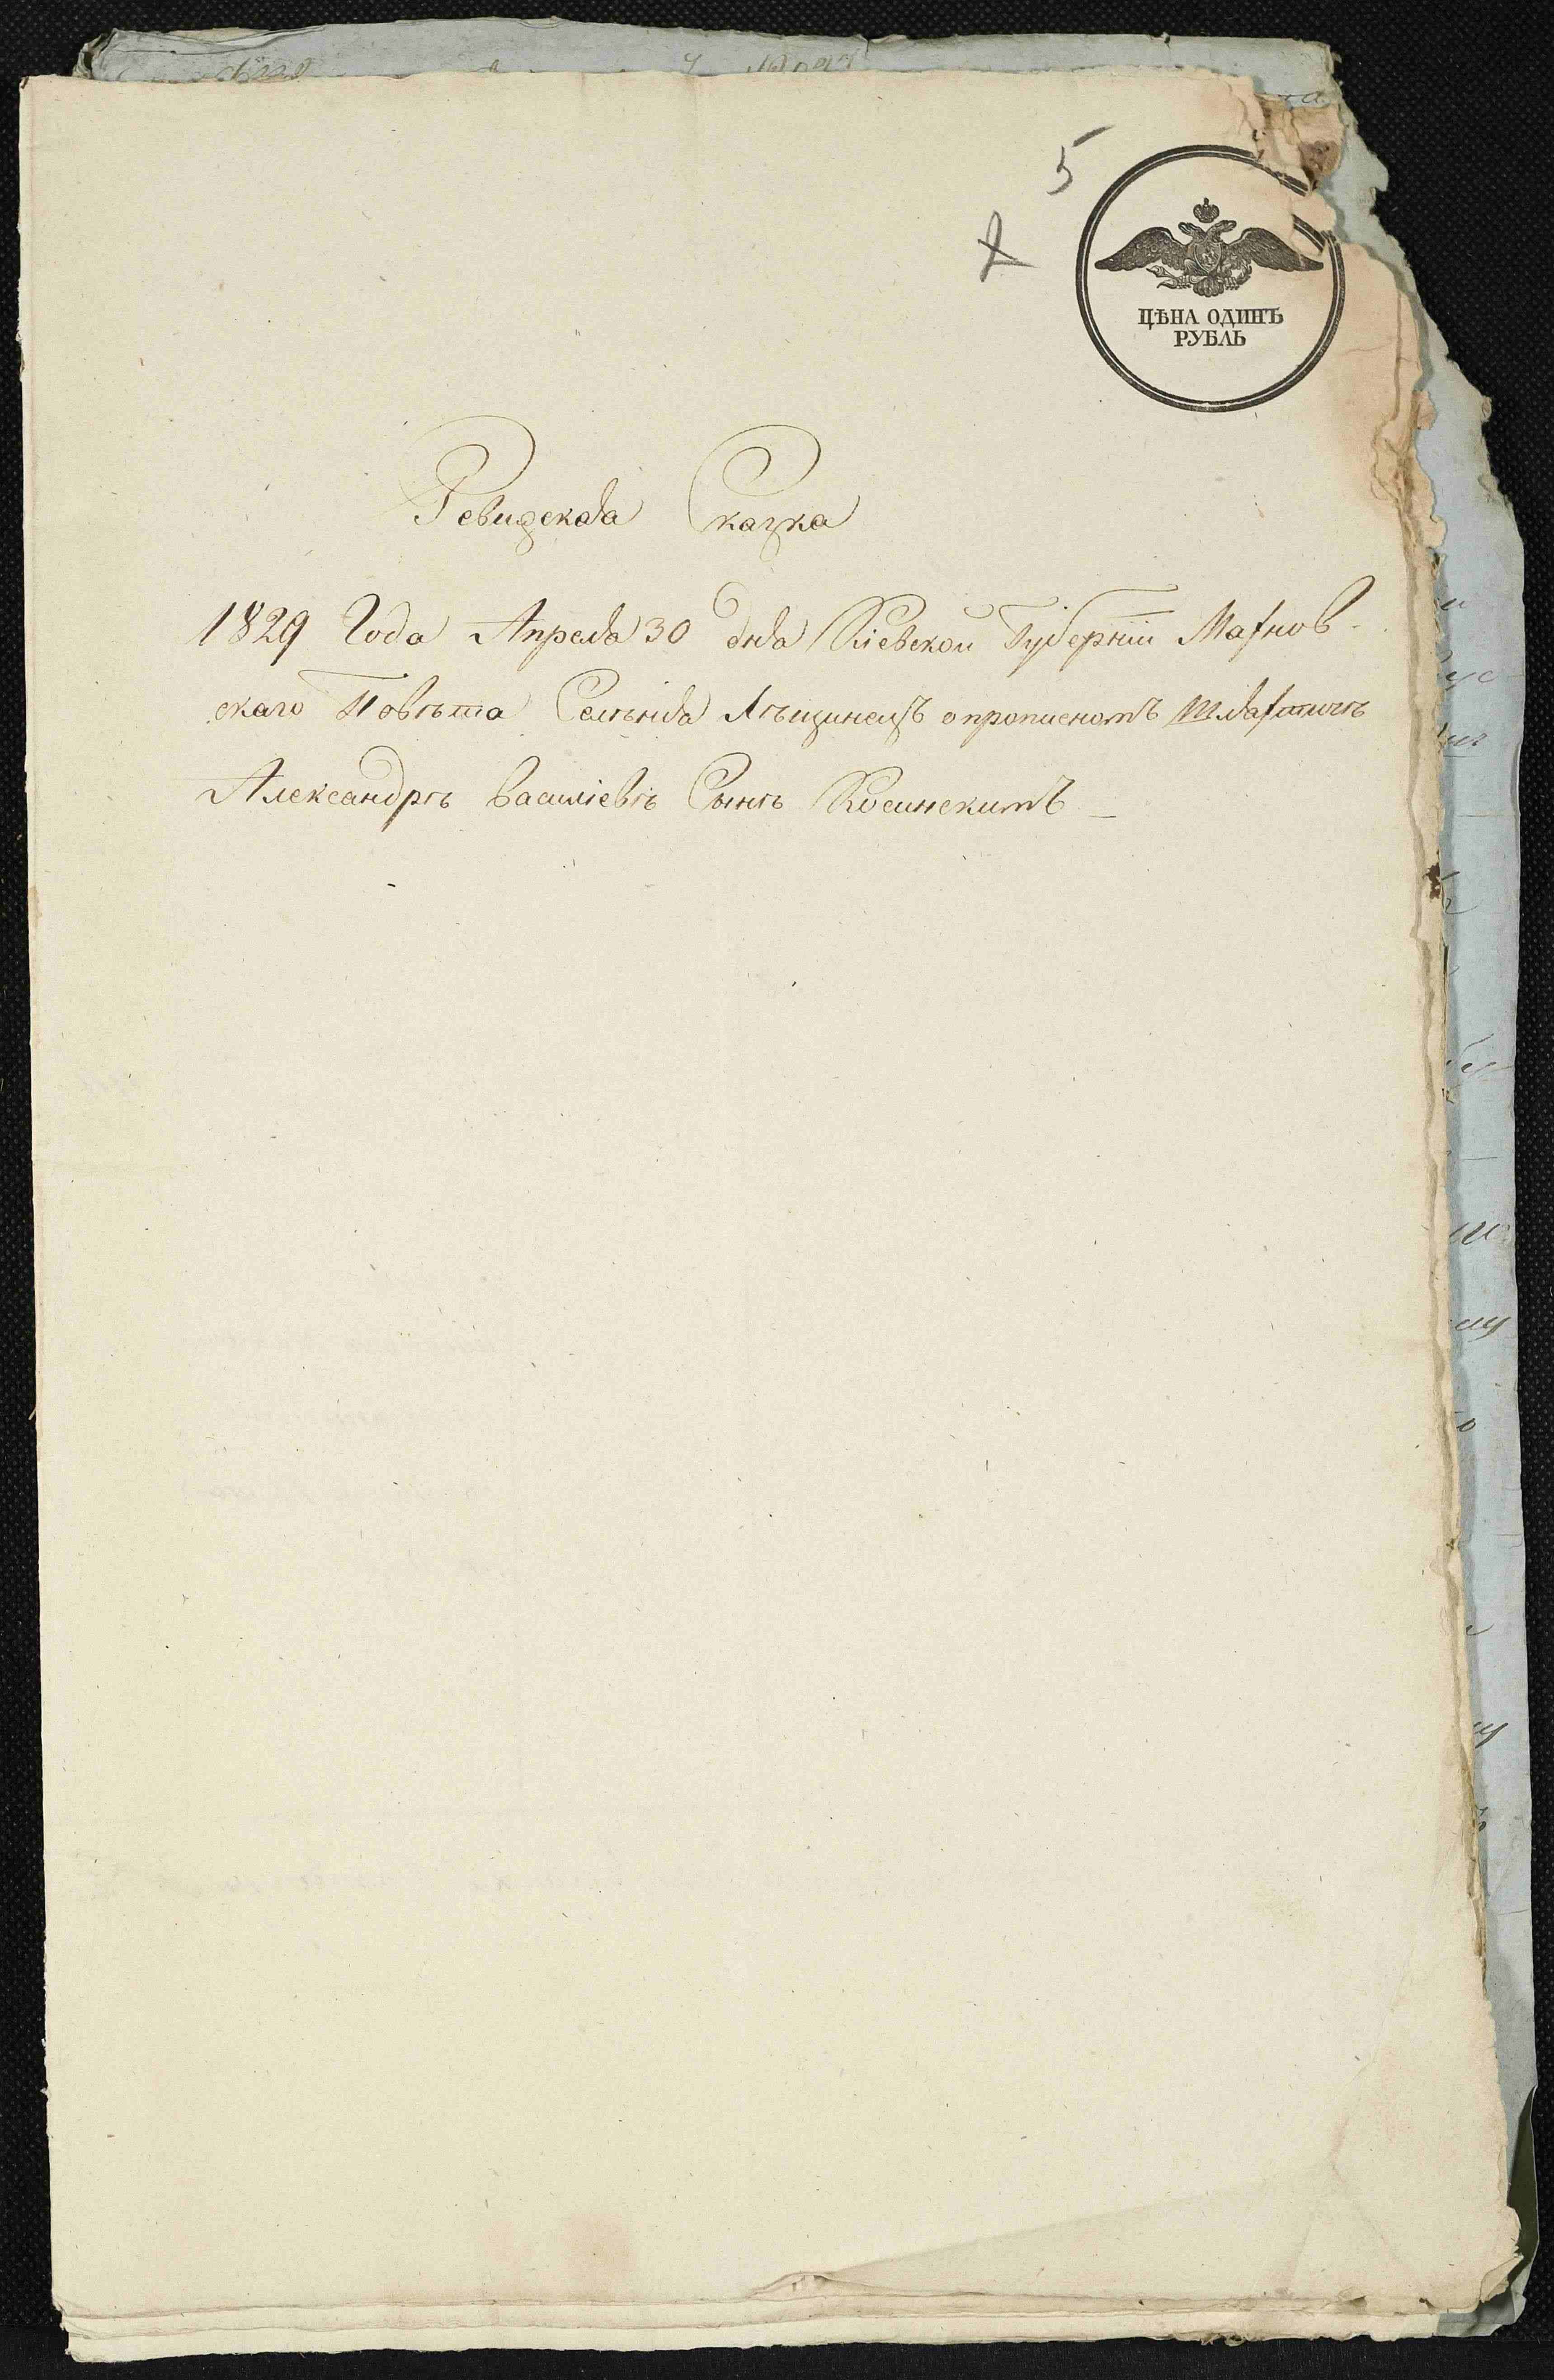 5
ЦѢНА ОДИНЪ
РУБЛЬ
Ревизская Сказка
1829 Года Апреля 30 дня Кіевской Губерніи Махнов-
скаго Повѣта Селѣнія опрописномъ Шляхтичѣ
Александрѣ Василіевѣ Сынѣ Косинскимъ